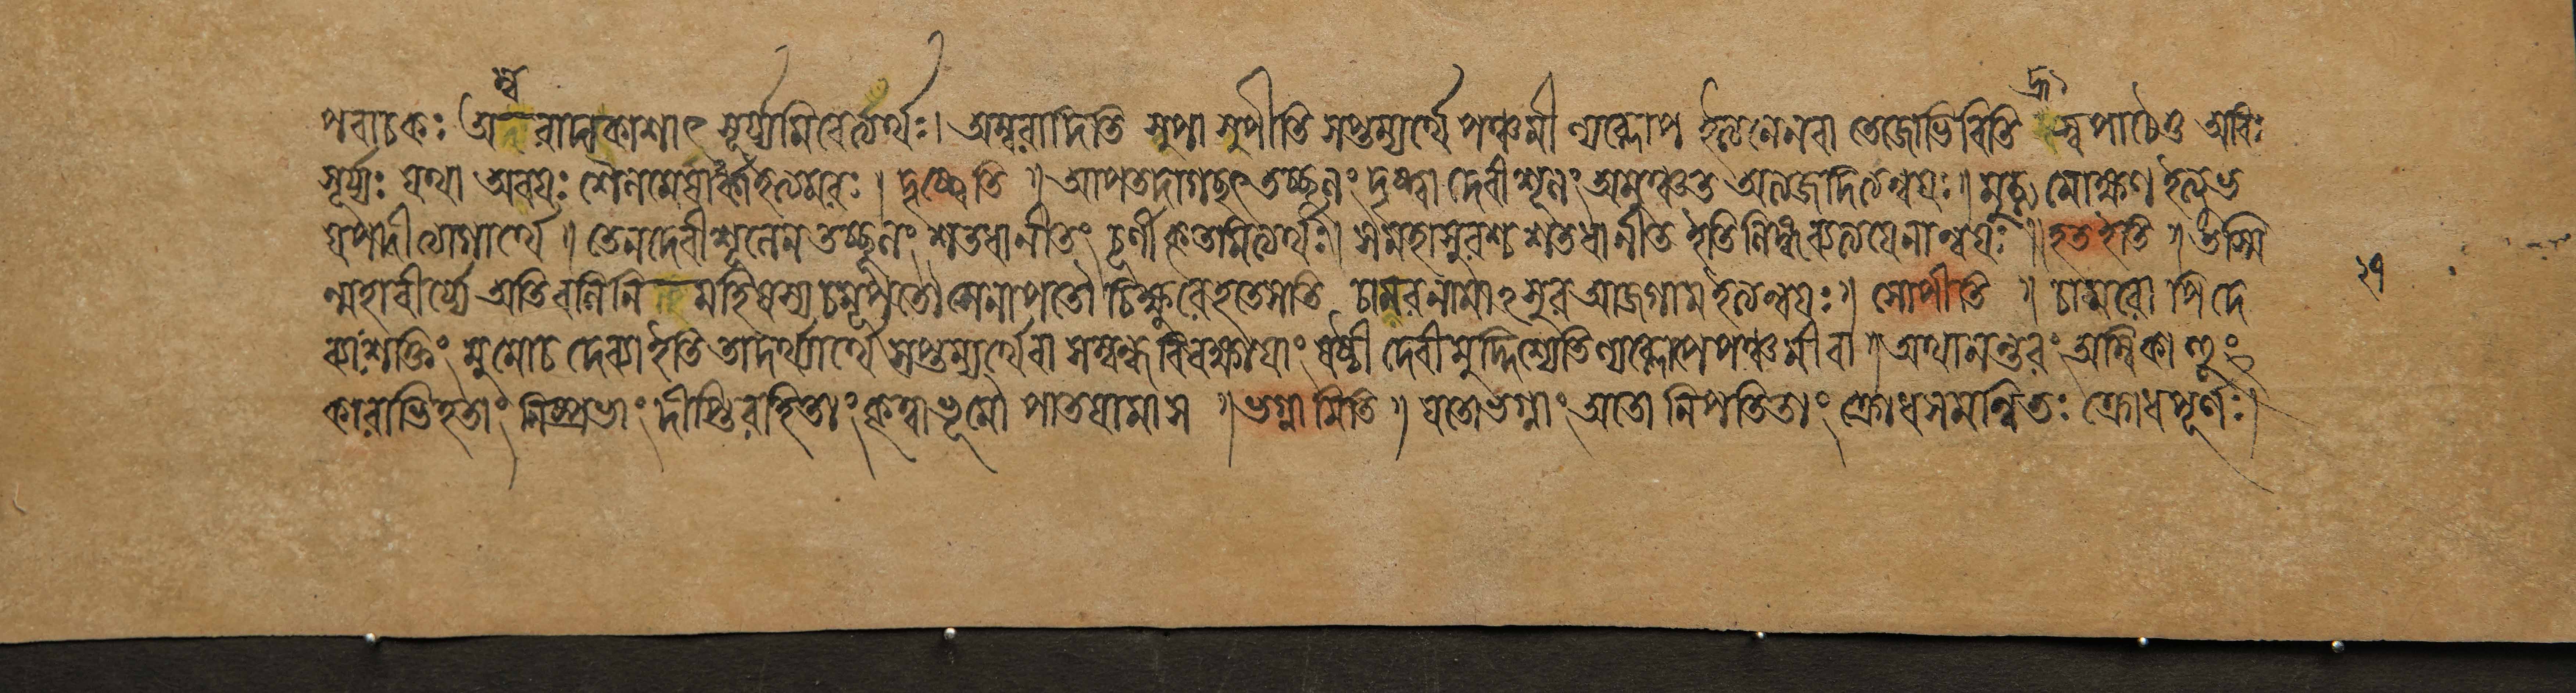 পবাচকঃ অম্বরাদাকাশাৎ সূর্য্যমিবেত্যর্থঃ। অম্বরাদিতি সুপা সুপীতি সপ্তম্যর্থে পঞ্চমী ণ্যব্লোপ ইত্যনেনবা তেজোভিরিতি স্বপাঠেতু অবিঃ
সূর্য্যঃ যথা অবয়ঃ শৈলমেষার্কা ইত্যমরঃ। দৃষ্ট্বেতি॥ আপতদাগচ্ছৎ তচ্ছূলং দৃষ্ট্বা দেবী শূলং অমুঞ্চত অত্যজদিত্যন্বয়ঃ॥ মুচ্ মোক্ষণ ইত্যুভ
য়পদী ত্যাগার্থে॥ তেনদেবীশূলেন তচ্ছূলং শতধানীতং চূর্ণীকৃতমিত্যর্থঃ। সমহাসুরশ্চ শতধানীত ইতিলিঙ্গব্যত্যয়েনান্বয়ঃ॥ হত ইতি॥ তস্মি
ন্মহাবীর্য্যে অতিবলিনি মহিষস্য চমূপতৌ সেনাপতৌ চিক্ষুরেহতেসতি চামরনামাঽসুর আজগাম ইত্যন্বয়ঃ॥ সোপীতি॥ চামরো পি দে
ব্যাংশক্তিং মুমোচ দেব্যা ইতি তাদর্থ্যার্থে সপ্তম্যর্থেবা সম্বন্ধবিবক্ষায়াং ষষ্ঠী দেবীমুদ্দিশ্যেতিণ্যব্লোপেপঞ্চমীবা॥ অথানন্তরং অম্বিকা হূং
কারাভিহতাং নিষ্প্রভাং দীপ্তিরহিতাং কৃত্বাভূমৌ পাতয়ামাস॥ ভগ্নামিতি॥ যতোভগ্নাং অতো নিপতিতাং ক্রোধসমন্বিতঃ ক্রোধপূর্ণঃ।